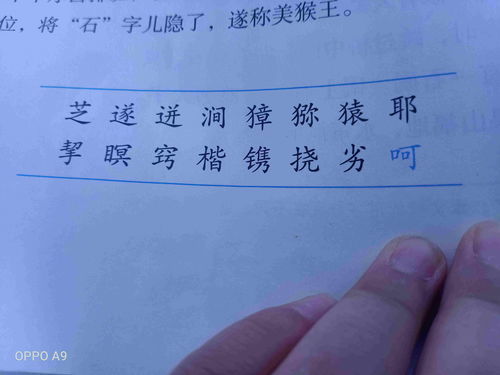 位，将“石”字儿隐了，遂称美猴王。
芝 遂 迸 涧 獐 猕 猿 耶
挈 瞑 窍 楷 镌 挠 劣 呵
OPPO A9